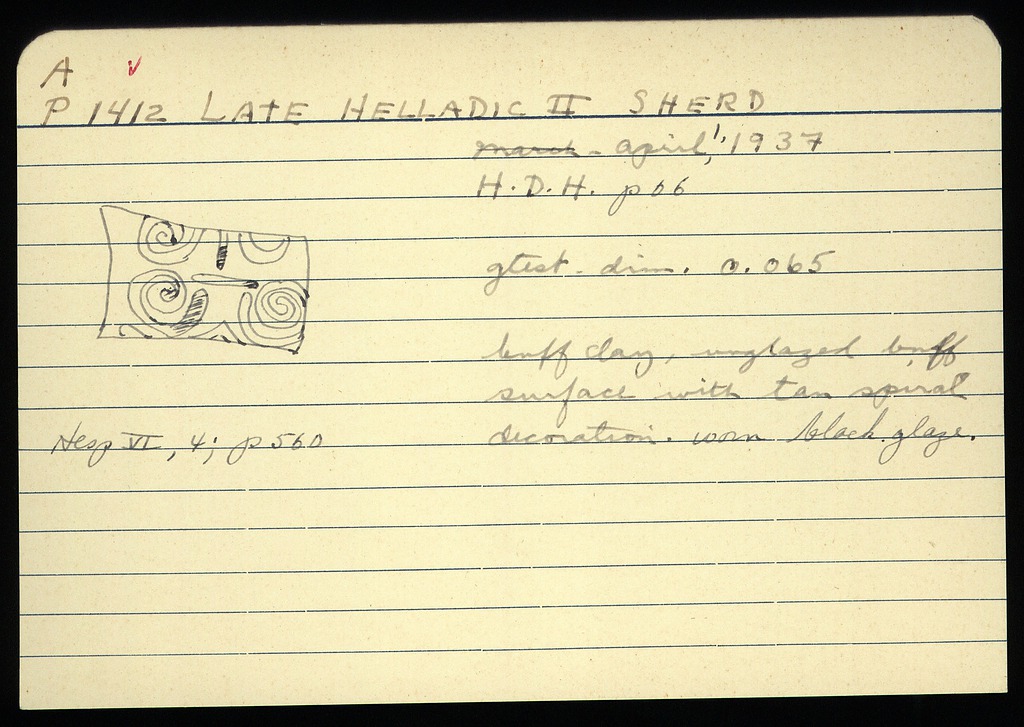 A
P 1412 LATE HELLADIC II SHERD
march - april, 1937
H.D.H. p 66
gtest. dim. 0.065
buff clay, unglazed buff
surface with tan spiral
decoration. worn black glaze.
Hesp VI, 4; p 560